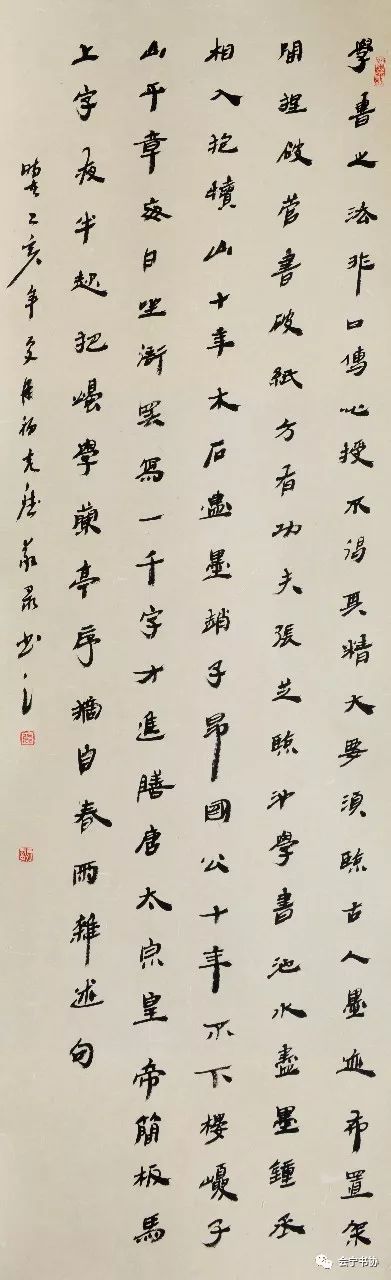 學書之法非口傳心授不得其精大要須臨古人墨迹布置架
間捏破管書破紙方有功夫張芝臨池學書池水盡墨鍾丞
相入抱犢山十年木石盡墨趙子昂國公十年不下樓巙子
山平章每日坐衙罷寫一千字才進膳唐太宗皇帝簡板馬
上字夜半起把燭學蘭亭序摘自春雨雜述句
時己亥年夏
录书之
会宁书协